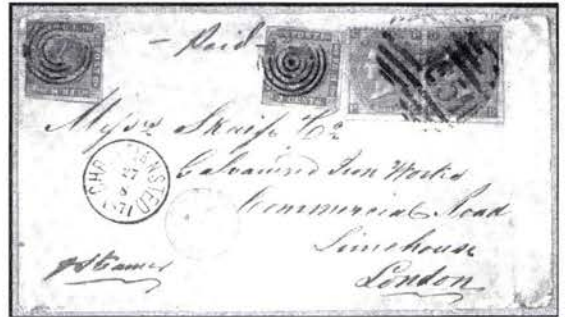 Paid
Messrs Skaife & Co
Galvanized Iron Works
Commercial Road
Limehouse
London
pr Steamer
CHRISTIANSTED
27
1871
C51
3 CENTS